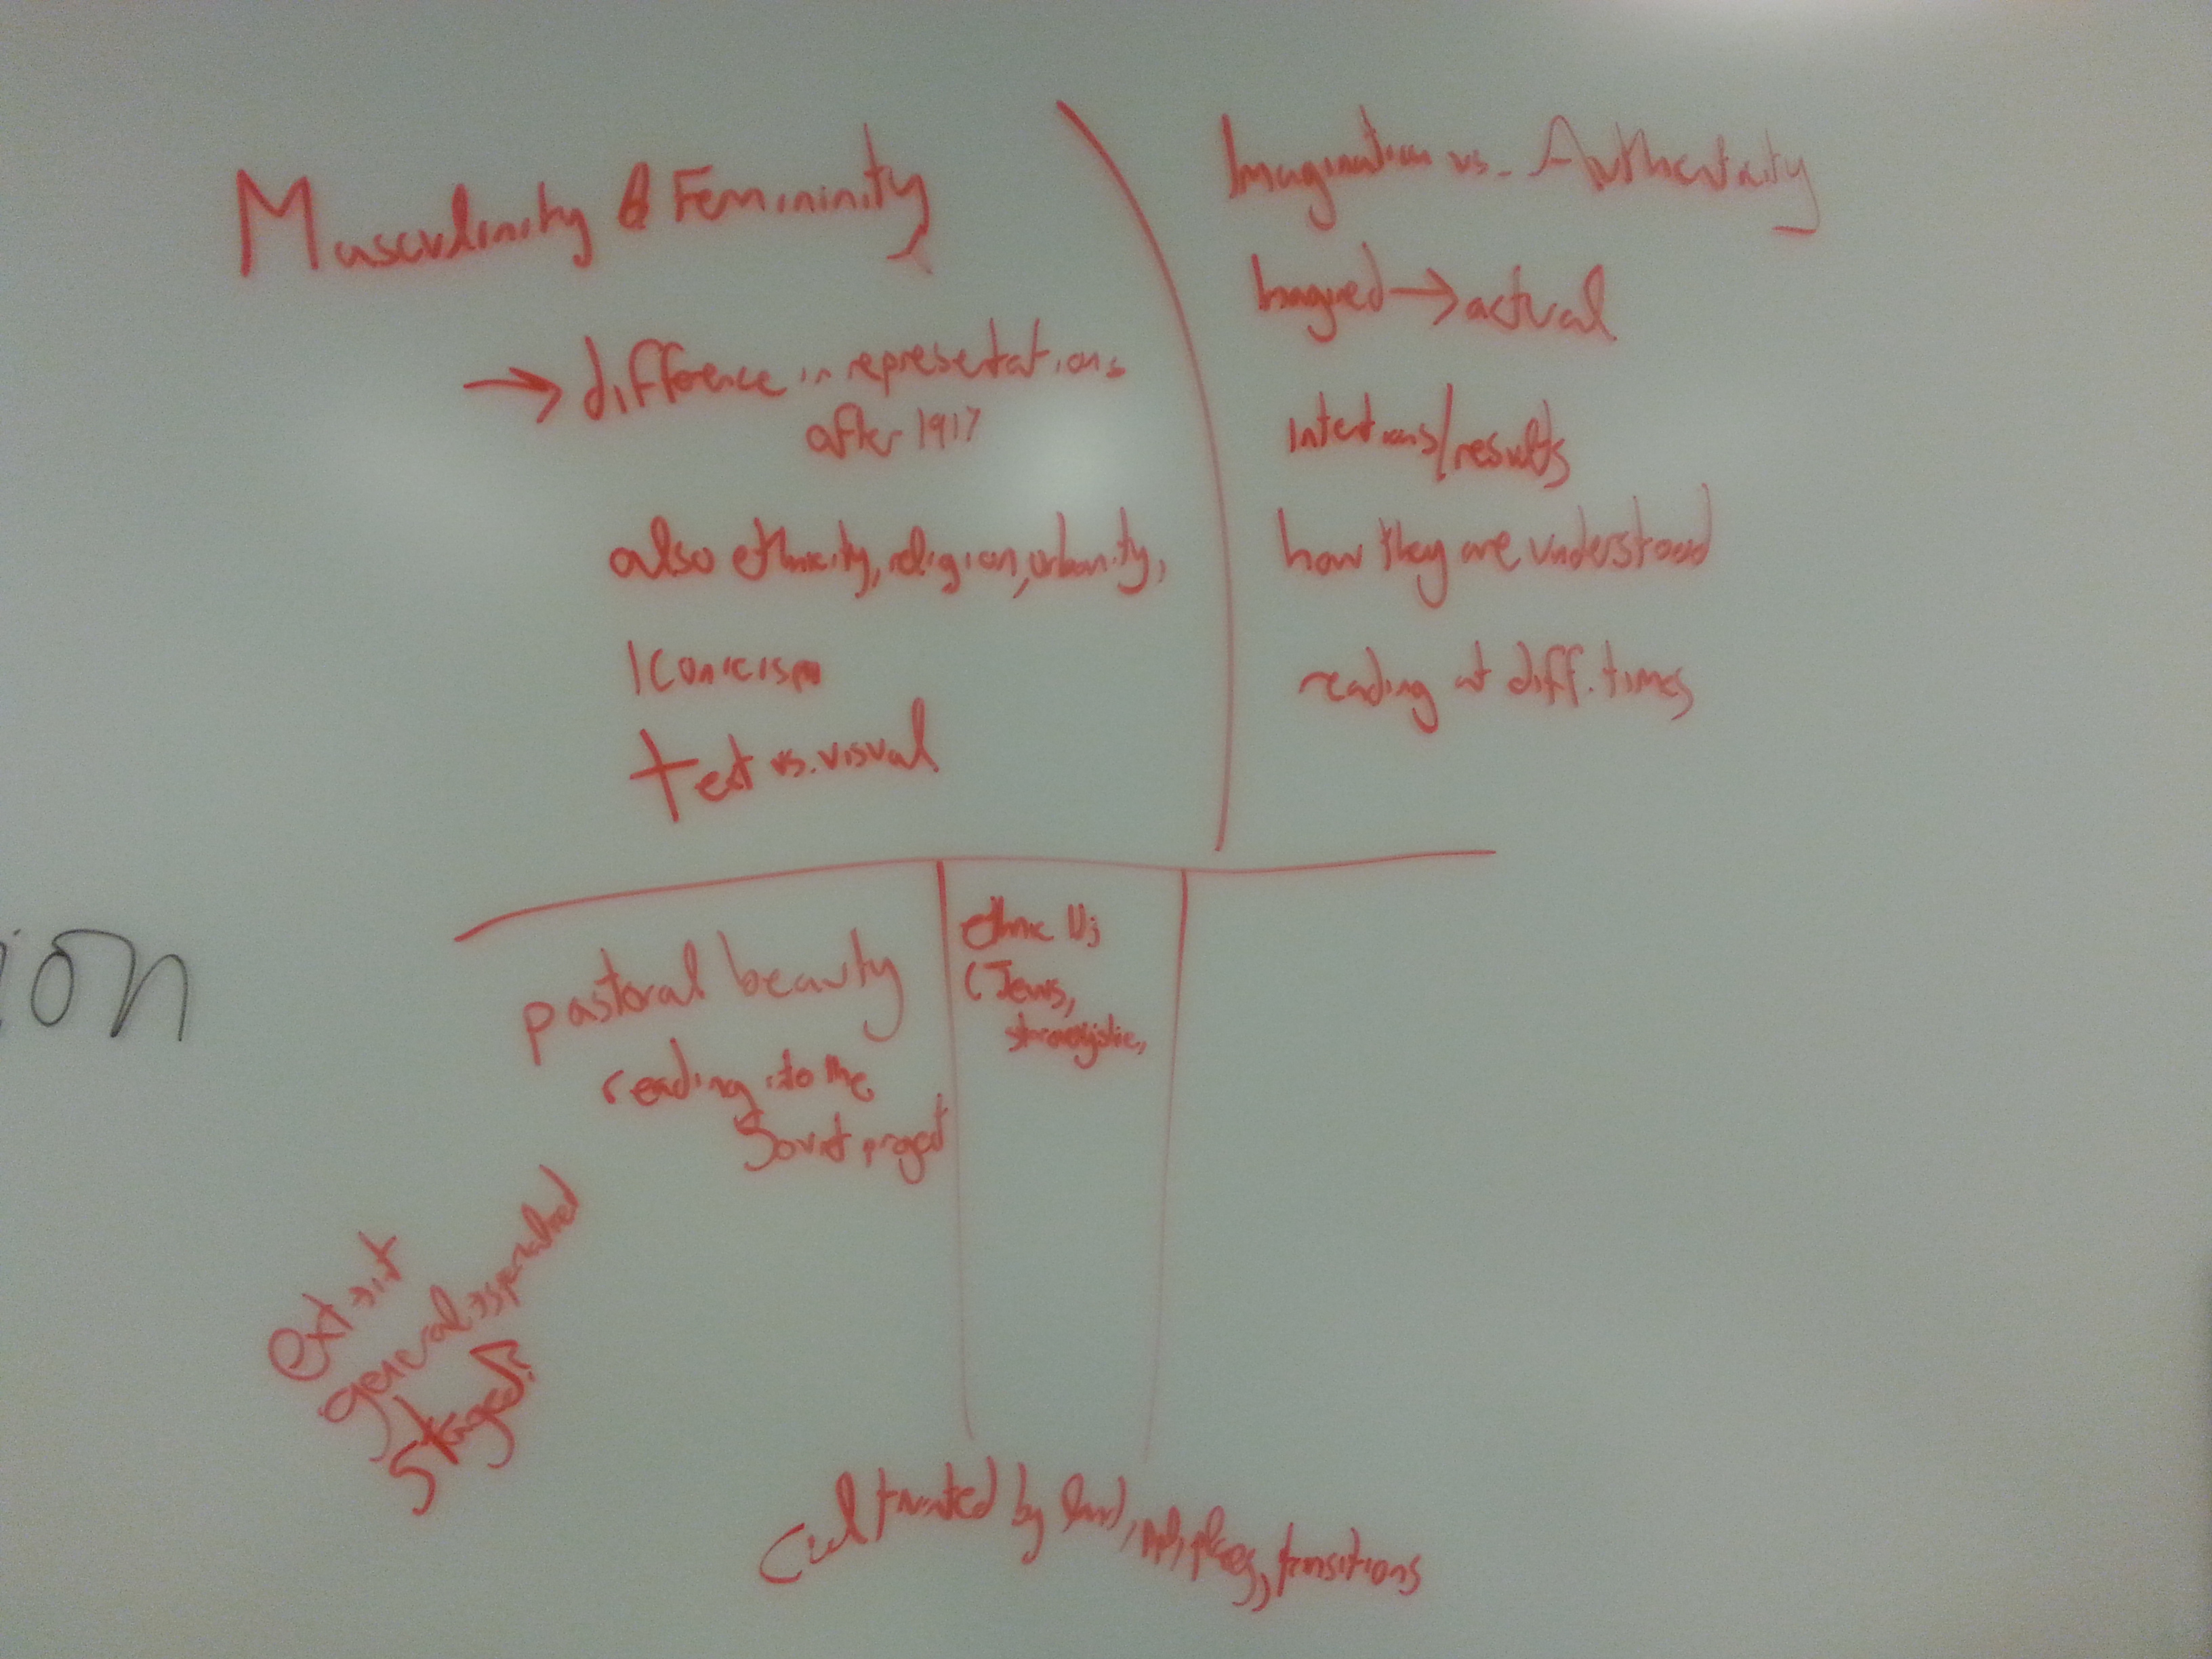 Masculinity & Femininity
→ difference in representations
after 1917
also ethnicity, religion, urbanity,
Iconicism
text vs. visual
Imagination vs. Authenticity
Imagined → actual
intentions/results
how they are understood
reading at diff. times
ion
pastoral beauty
reading into the
Soviet project
ethnic
(Jews,
ext → int
general →
staged?
by land, ppl, places, transitions